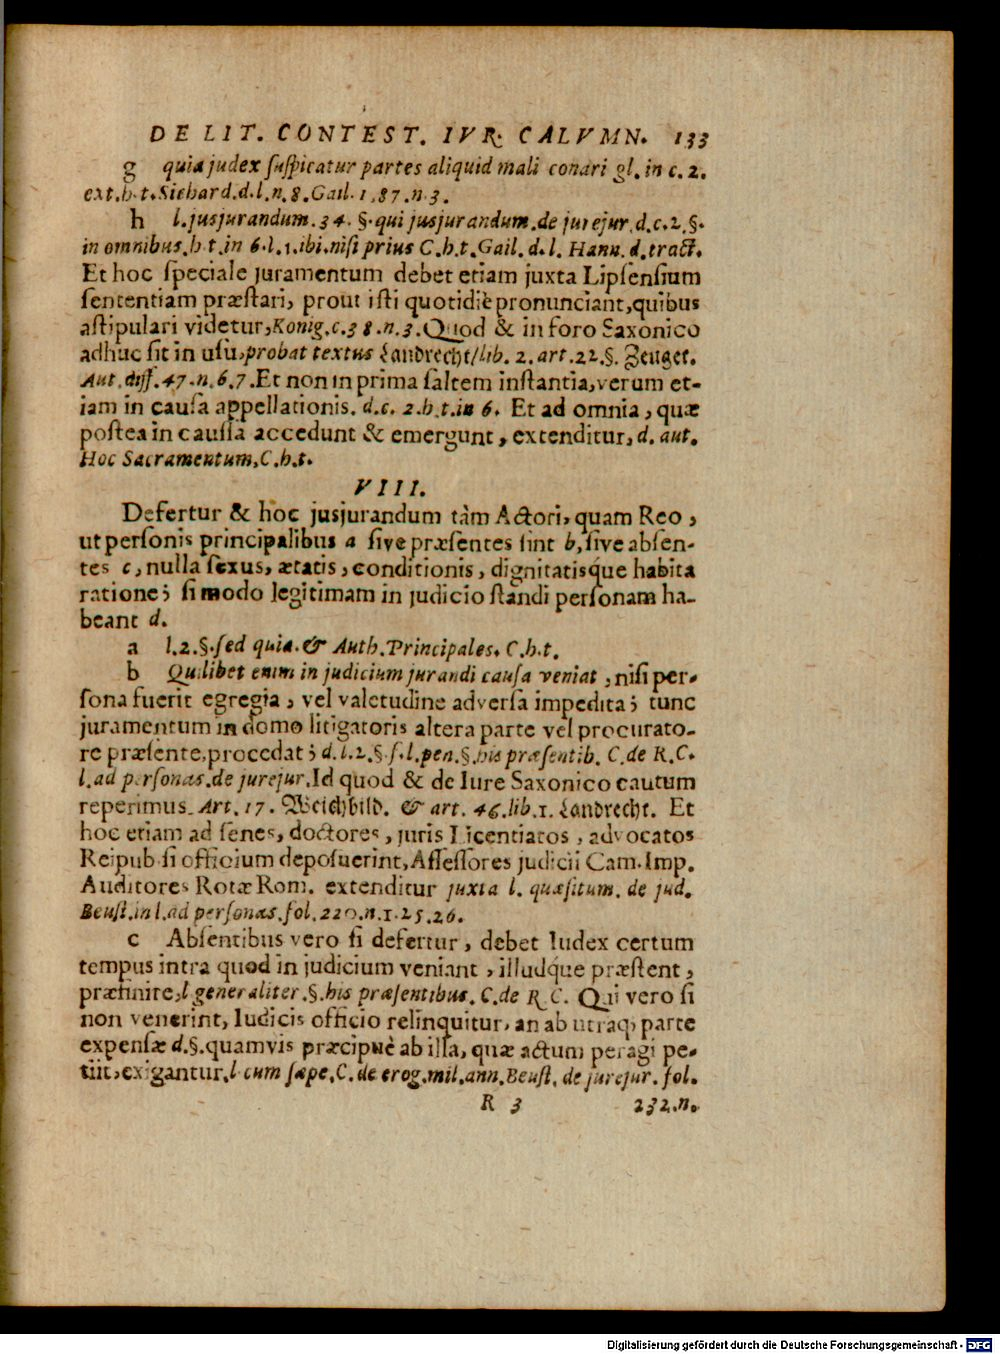 DE LIT. CONTEST. IVR. CALVMN. 133
g quia judex suspicatur partes aliquid mali conari gl. in c. 2.
ext. h. t. Sichard. d. l. n. 8. Gail. 1, 87. n. 3.
h l. jusjurandum. 34. §. qui jusjurandum. de jurejur. d. c. 2. §.
in omnibus. h. t. in 6. l. 1. ibi. nisi prius C. h. t. Gail. d. l. Hann. d. tract.
Et hoc speciale juramentum debet etiam juxta Lipsensium
sententiam præstari, prout isti quotidiè pronunciant, quibus
astipulari videtur, Konig. c. 38. n. 3. Quod & in foro Saxonico
adhuc sit in usu, probat textus Landrecht/ lib. 2. art. 22. §. Zeuget.
Aut. diff. 47. n. 6. 7. Et non in prima saltem instantia, verum et-
iam in causa appellationis. d. c. 2. h. t. in 6. Et ad omnia, quæ
postea in caussa accedunt & emergunt, extenditur, d. aut.
Hoc Sacramentum, C. h. t.
VIII.
Defertur & hoc jusjurandum tàm Actori, quam Reo,
ut personis principalibus a sive præsentes sint b, sive absen-
tes c, nulla sexus, ætatis, conditionis, dignitatisque habita
ratione; si modo legitimam in judicio standi personam ha-
beant d.
a l. 2. §. sed quia. & Auth. Principales. C. h. t.
b Quilibet enim in judicium jurandi causa veniat, nisi per-
sona fuerit egregia, vel valetudine adversa impedita; tunc
juramentum in domo litigatoris altera parte vel procurato-
re præsente, procedat; d. l. 2. §. s. l. pen. §. his præsentib. C. de R. C.
l. ad personas. de jurejur. Id quod & de Iure Saxonico cautum
reperimus. Art. 17. Weichbild. & art. 46. lib. 1. Landrecht. Et
hoc etiam ad senes, doctores, juris Licentiatos, advocatos
Reipub si officium deposuerint, Assessores judicii Cam. Imp.
Auditores Rotæ Rom. extenditur juxta l. quæsitum. de jud.
Beust. in l. ad personas. fol. 220. n. 1. 25. 26.
c Absentibus vero si defertur, debet Iudex certum
tempus intra quod in judicium veniant, illudque præstent,
præfinire, l generaliter. §. his præsentibus. C. de R. C. Qui vero si
non venerint, Iudicis officio relinquitur, an ab utraq; parte
expensæ d. §. quamvis præcipuè ab illa, quæ actum peragi pe-
tiit, exigantur. l cum sæpe. C. de erog. mil. ann. Beust. de jurejur. fol.
R 3 232. n.
Digitalisierung gefördert durch die Deutsche Forschungsgemeinschaft - DFG